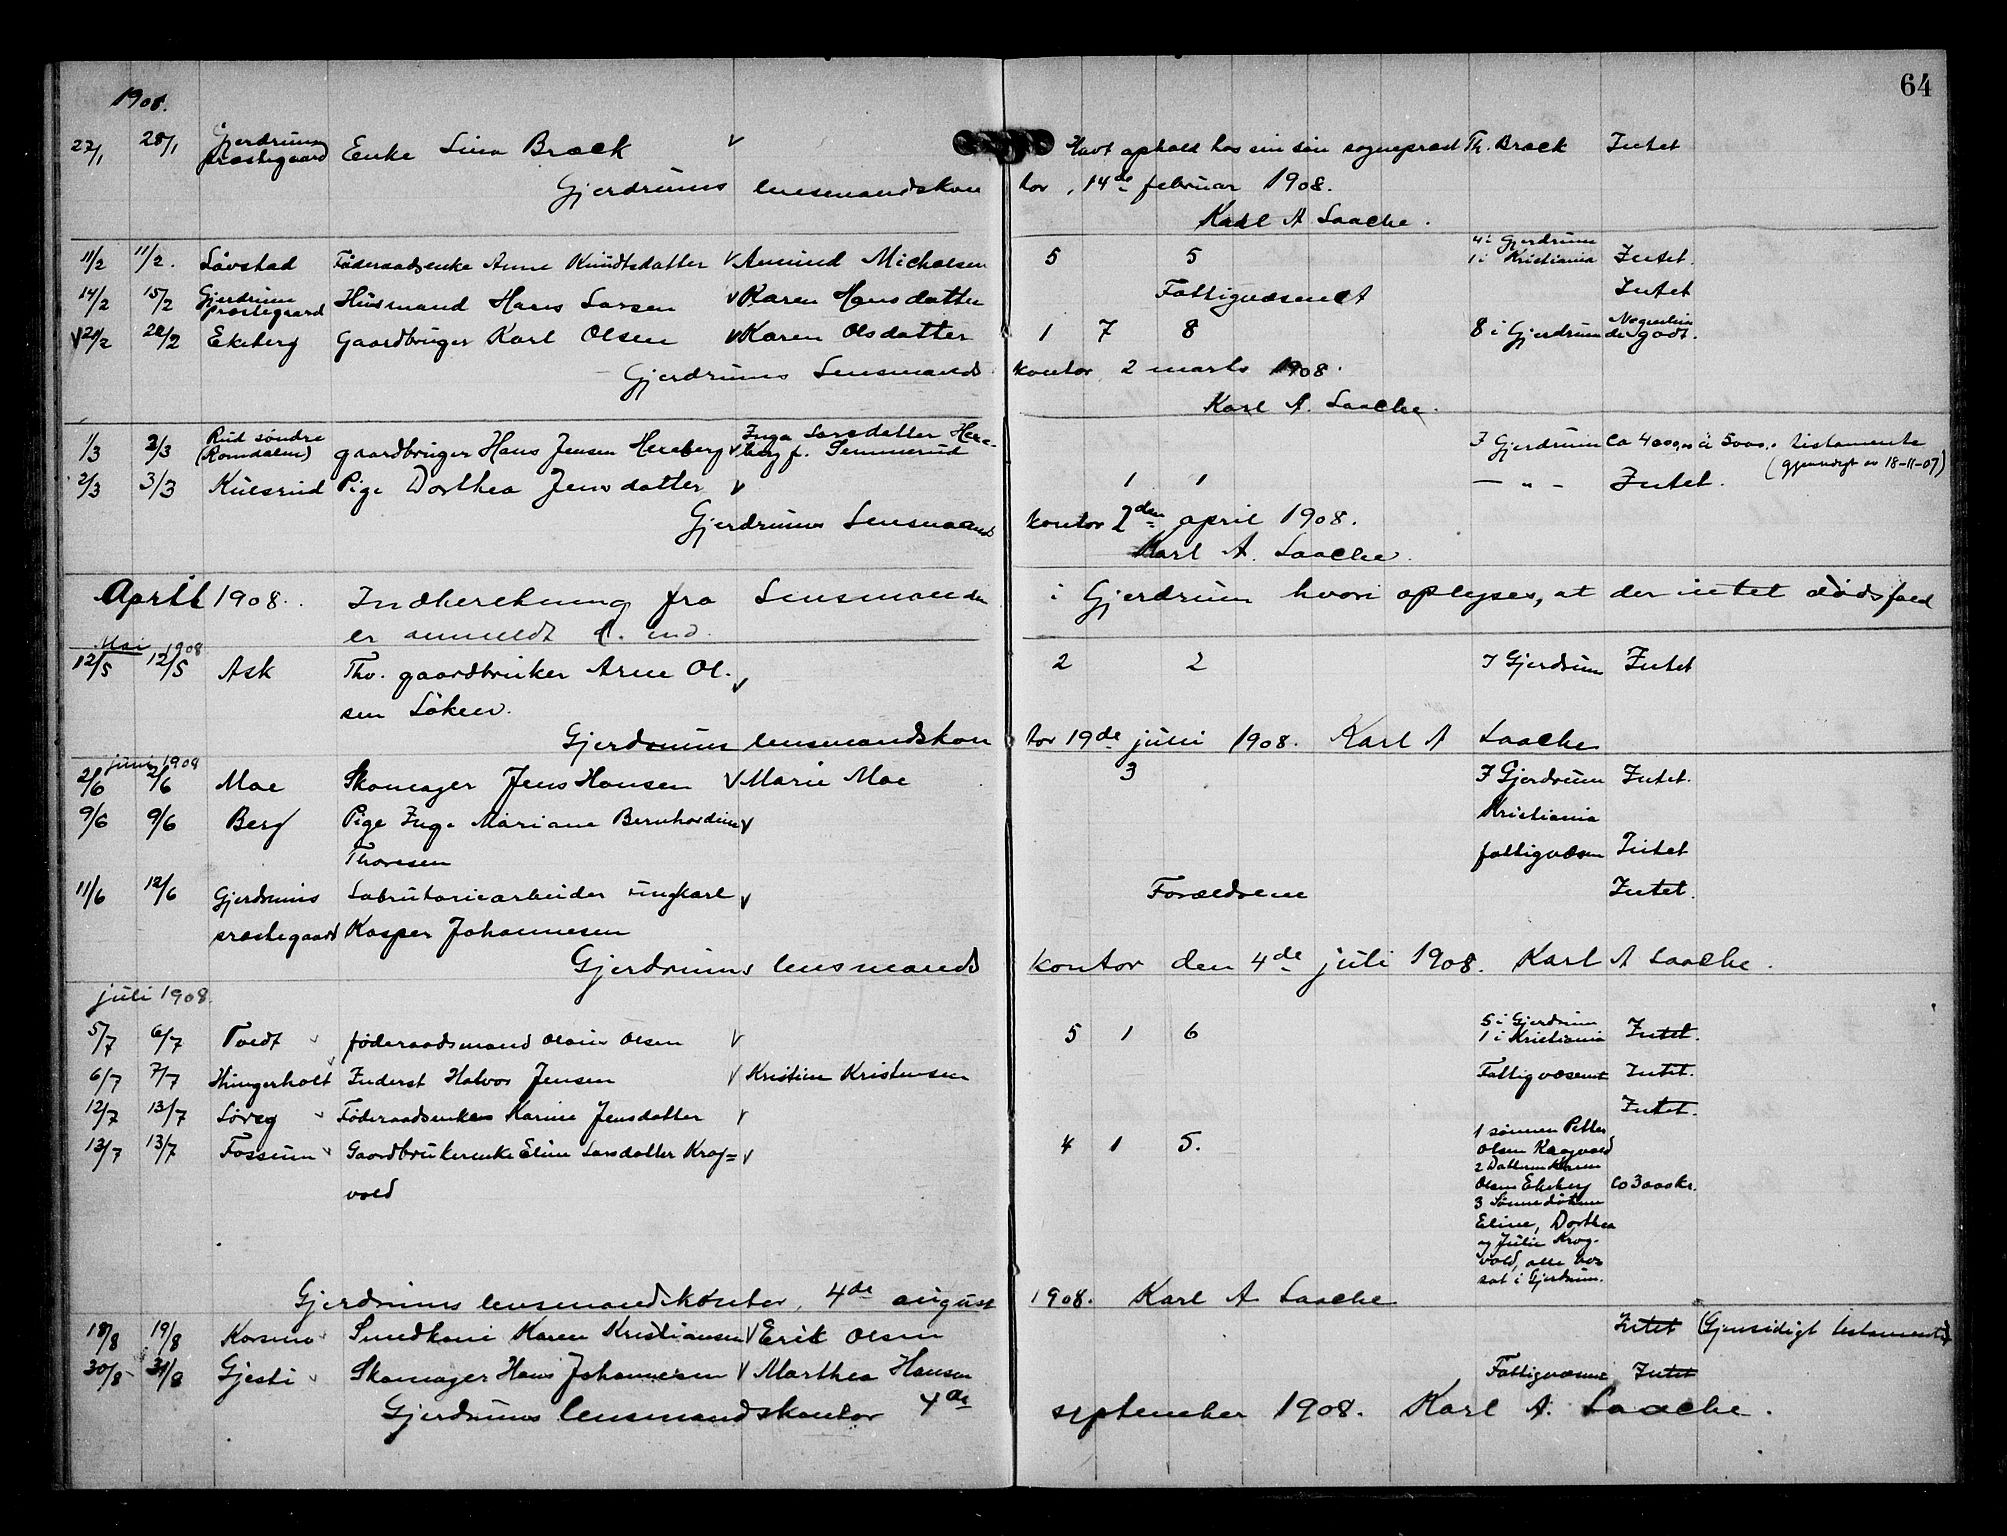 64
1908.
27/1 28/1 Gjerdrum præstegaard Enke Lina Braek v Havt ophold hos sin søn sogneprest Th. Braek Intet
Gjerdrums lensmandskon tor, 14de februar 1908.
Karl A Laache.
11/2 11/2. Løvstad Føderaadsenke Anne Knudtsdatter v Amund Michalsen 5 5 4 i Gjerdrum 1 i Kristiania Intet.
14/2 15/2 Gjerdrum prestegaard Husmand Hans Larsen v Karen Hansdatter Fattigvæsenet Intet
v 20/2 20/2 Ekeberg Gaardbruger Karl Olsen v Karen Olsdatter 1 7 8 8 i Gjerdrum
Gjerdrums Lensmands kontor, 2 marts 1908.
Karl A. Laache.
1/3 2/3 Rud søndre (Romdalen) gaardbruger Hans Jensen Hexeberg v Inga Larsdatter Hexeberg f. I Gjerdrum Ca 4000,00 à 5000,- testamente
18-11-07)
2/3 3/3 Kulsrud Pige Dorthea Jensdatter v 1 1 — " — Intet.
Gjerdrums Lensmands kontor 2den april 1908.
Karl A. Laache.
April 1908. Indberetning fra Lensmanden i Gjerdrum hvori oplyses, at der intet dødsfald
er anmeldt d. md.
Mai 1908
12/5 12/5 Ask Thv. gaardbruker Arne Ol- v 2 2 I Gjerdrum Intet
sen Løken.
Gjerdrums lensmandskon tor 19de juni 1908. Karl A Laache
juni 1908
2/6 2/6 Moe Skomager Jens Hansen v Marie Moe 3 I Gjerdrum Intet.
9/6 9/6 Berg Pige Inga Mariane Bernhardine v Kristiania
Thoresen fattigvæsen Intet
11/6 12/6 Gjerdrums Labratoriearbeider ungkarl v Forældrene Intet.
prestegaard Kasper Johannesen
Gjerdrums lensmands kontor den 4de juli 1908. Karl A Laache.
juli 1908.
5/7 6/7 Tvedt føderaadsmand Olaus Olsen v 5 1 6 5 i Gjerdrum 1 i Kristiania Intet.
6/7 7/7 Hungerholt Inderst Halvor Jensen v Kristine Kristensen Fattigvæsenet Intet.
12/7 13/7 Føderaadsenken Karine Jensdatter v Intet.
13/7 13/7 Fossum Gaardbrukerenke Eline Larsdatter Krog= v 4 1 5. 1 sønnen Petter
vold Olsen Krogvold
2 Datteren Karen
Olsen Ekeberg Ca 3000 kr.
3 Sønnedøtrene
Eline, Dorthea
og Julie Krog-
vold, alle bo-
sat i Gjerdrum.
Gjerdrums lensmandskontor, 4de august 1908. Karl A Laache
18/8 19/8 Kosmo Smedkone Karen Kristiansen v Erik Olsen Intet (Gjensidigt testamente)
30/8 31/8 Gjesti Skomager Hans Johannesen v Marthea Hansen Fattigvæsenet Intet
Gjerdrums lensmandskontor 4de september 1908. Karl A. Laache.